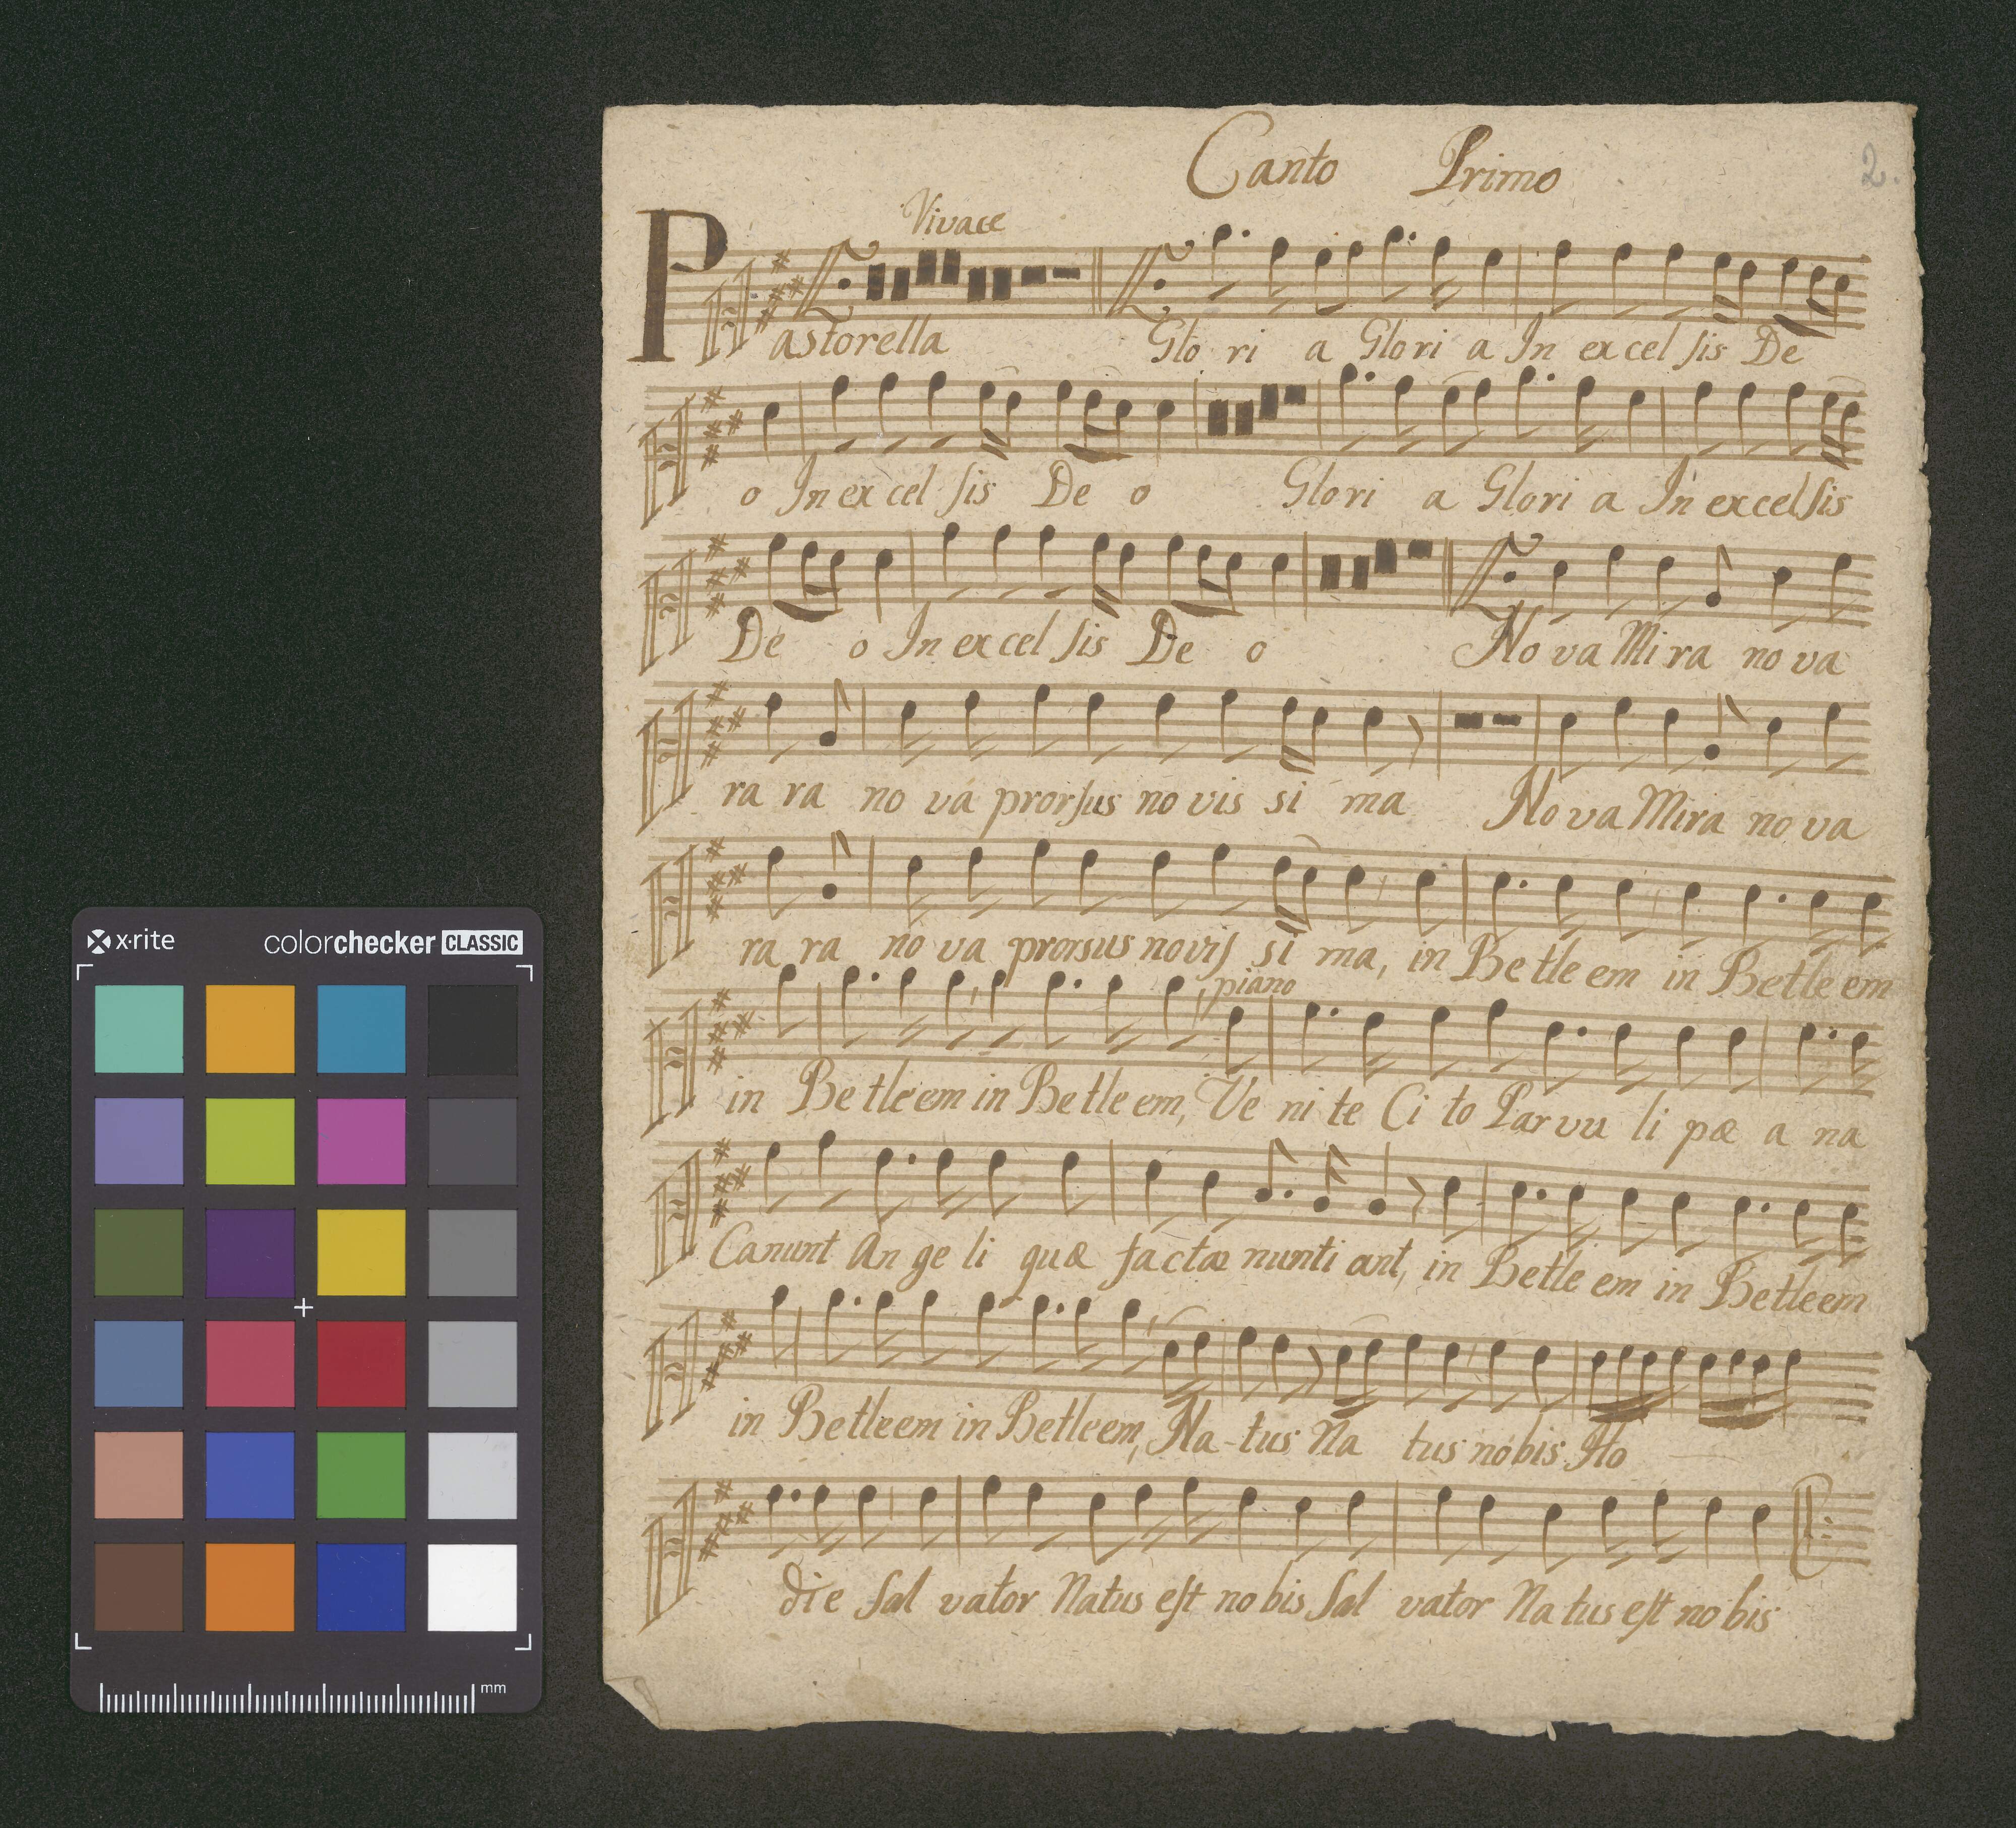 Canto Primo
2.
Vivace
Pastorella Glo ri a Glori a In excel sis De
o In excel sis De o Glori a Glori a In excelsis
De o In excel sis De o No va Mi ra no va
ra ra no va prorsus no vis si ma No va Mira no va
ra ra no va prorsus novis si ma, in Be tle em in Betle em
piano
in Be tleem in Be tle em, Ve ni te Ci to Parvu li pæ a na
Canunt An ge li quæ factæ nunti ant, in Betle em in Betleem
in Betleem in Betleem, Na-tus Na tus nobis Ho
die Sal vator Natus est no bis Sal vator Na tus est no bis
x·rite colorchecker CLASSIC
mm